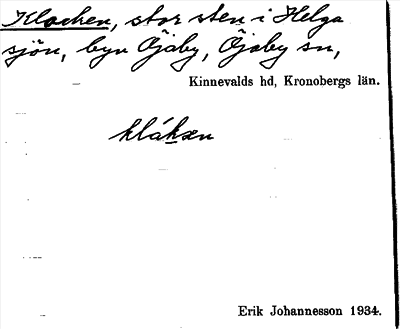 Klacken, stor sten i Helga
sjön, byn Öjaby, Öjaby sn,
Kinnevalds hd, Kronobergs län.
klákən
Erik Johannesson 1934.